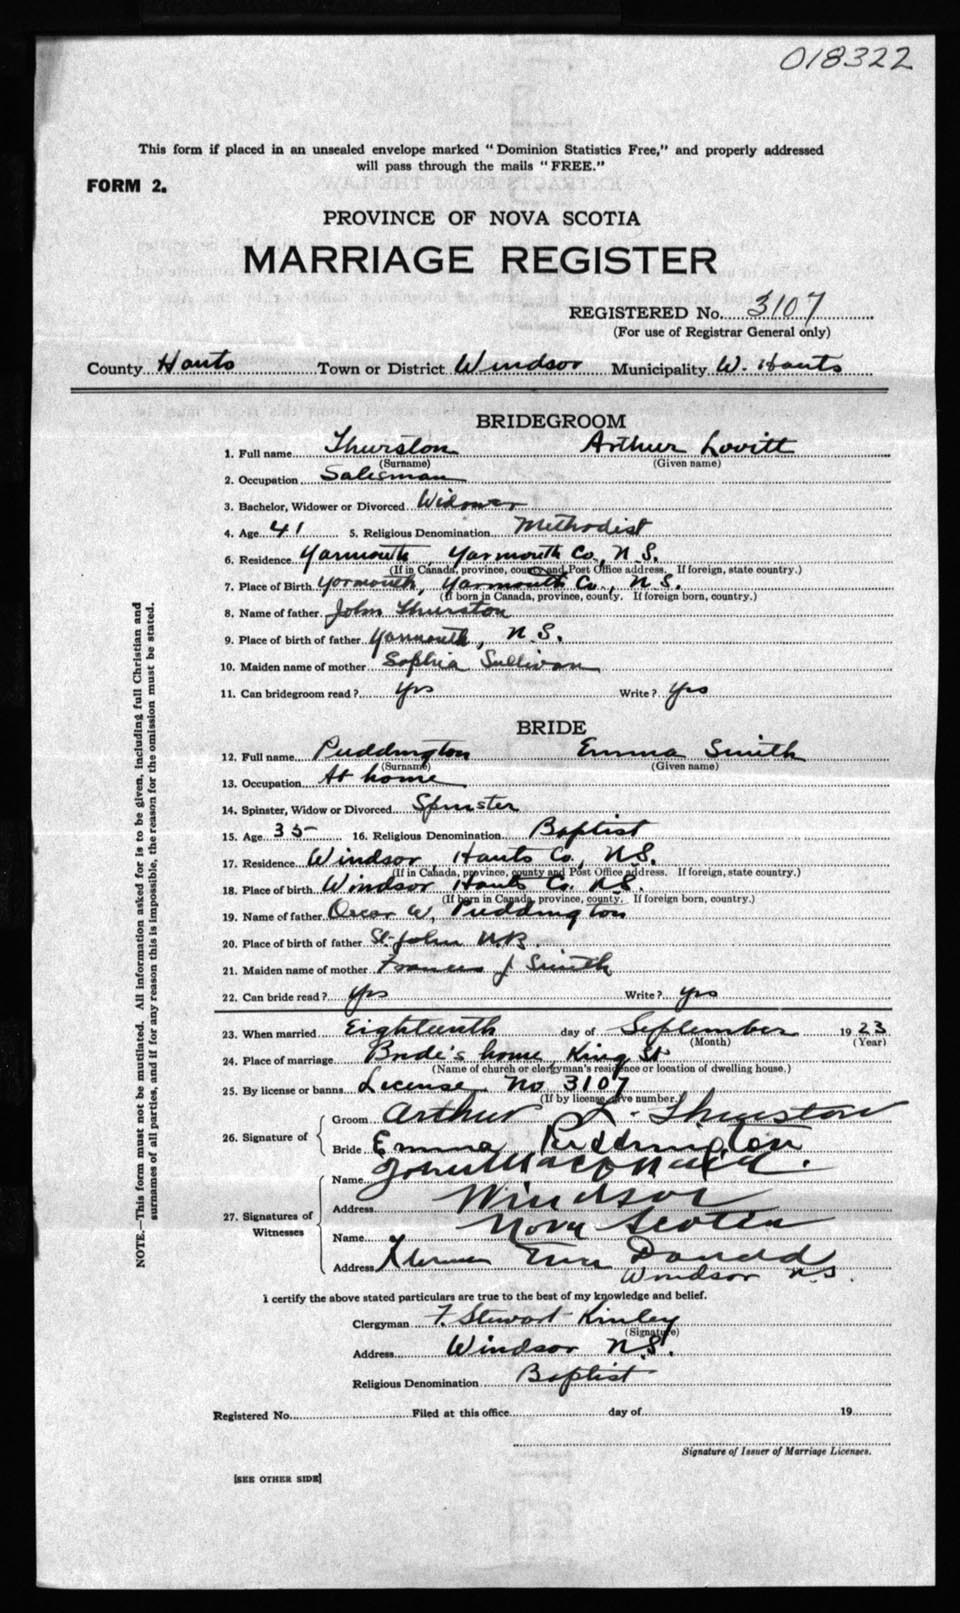 018322
This form if placed in an unsealed envelope marked "Dominion Statistics Free," and properly addressed
will pass through the mails "FREE."
FORM 2.
PROVINCE OF NOVA SCOTIA
MARRIAGE REGISTER
REGISTERED No. 3107
(For use of Registrar General only)
County Hants Town or District Windsor Municipality W. Hants
BRIDEGROOM
1. Full name Thurston Arthur Lovitt
(Surname) (Given name)
2. Occupation Salesman
3. Bachelor, Widower or Divorced Widower
4. Age 41 5. Religious Denomination Methodist
6. Residence Yarmouth, Yarmouth Co., N.S.
(If in Canada, province, county and Post Office address. If foreign, state country.)
7. Place of Birth Yarmouth, Yarmouth Co., N.S.
(If born in Canada, province, county. If foreign born, country.)
8. Name of father John Thurston
9. Place of birth of father Yarmouth, N.S.
10. Maiden name of mother Sophia Sullivan
11. Can bridegroom read? Yes Write? Yes
BRIDE
12. Full name Puddington Emma Smith
(Surname) (Given name)
13. Occupation At home
14. Spinster, Widow or Divorced Spinster
15. Age 35 16. Religious Denomination Baptist
17. Residence Windsor, Hants Co., N.S.
(If in Canada, province, county and Post Office address. If foreign, state country.)
18. Place of birth Windsor Hants Co. N.S.
(If born in Canada, province, county. If foreign born, country.)
19. Name of father Oscar W. Puddington
20. Place of birth of father St. John N.B.
21. Maiden name of mother Frances J Smith
22. Can bride read? Yes Write? Yes
23. When married Eighteenth day of September 1923
(Month) (Year)
24. Place of marriage Bride's home King St
(Name of church or clergyman's residence or location of dwelling house.)
25. By license or banns License No 3107
(If by license, give number.)
26. Signature of
Groom Arthur L. Thurston
Bride Emma Puddington
27. Signatures of Witnesses
Name
Address Windsor
Nova Scotia
Name
Address
Windsor N.S.
I certify the above stated particulars are true to the best of my knowledge and belief.
Clergyman F. Stewart Kinley
(Signature)
Address Windsor N.S.
Religious Denomination Baptist
Registered No. Filed at this office day of 19
Signature of Issuer of Marriage Licenses.
[SEE OTHER SIDE]
NOTE.—This form must not be mutilated. All information asked for is to be given, including full Christian and
surnames of all parties, and if for any reason this is impossible, the reason for the omission must be stated.